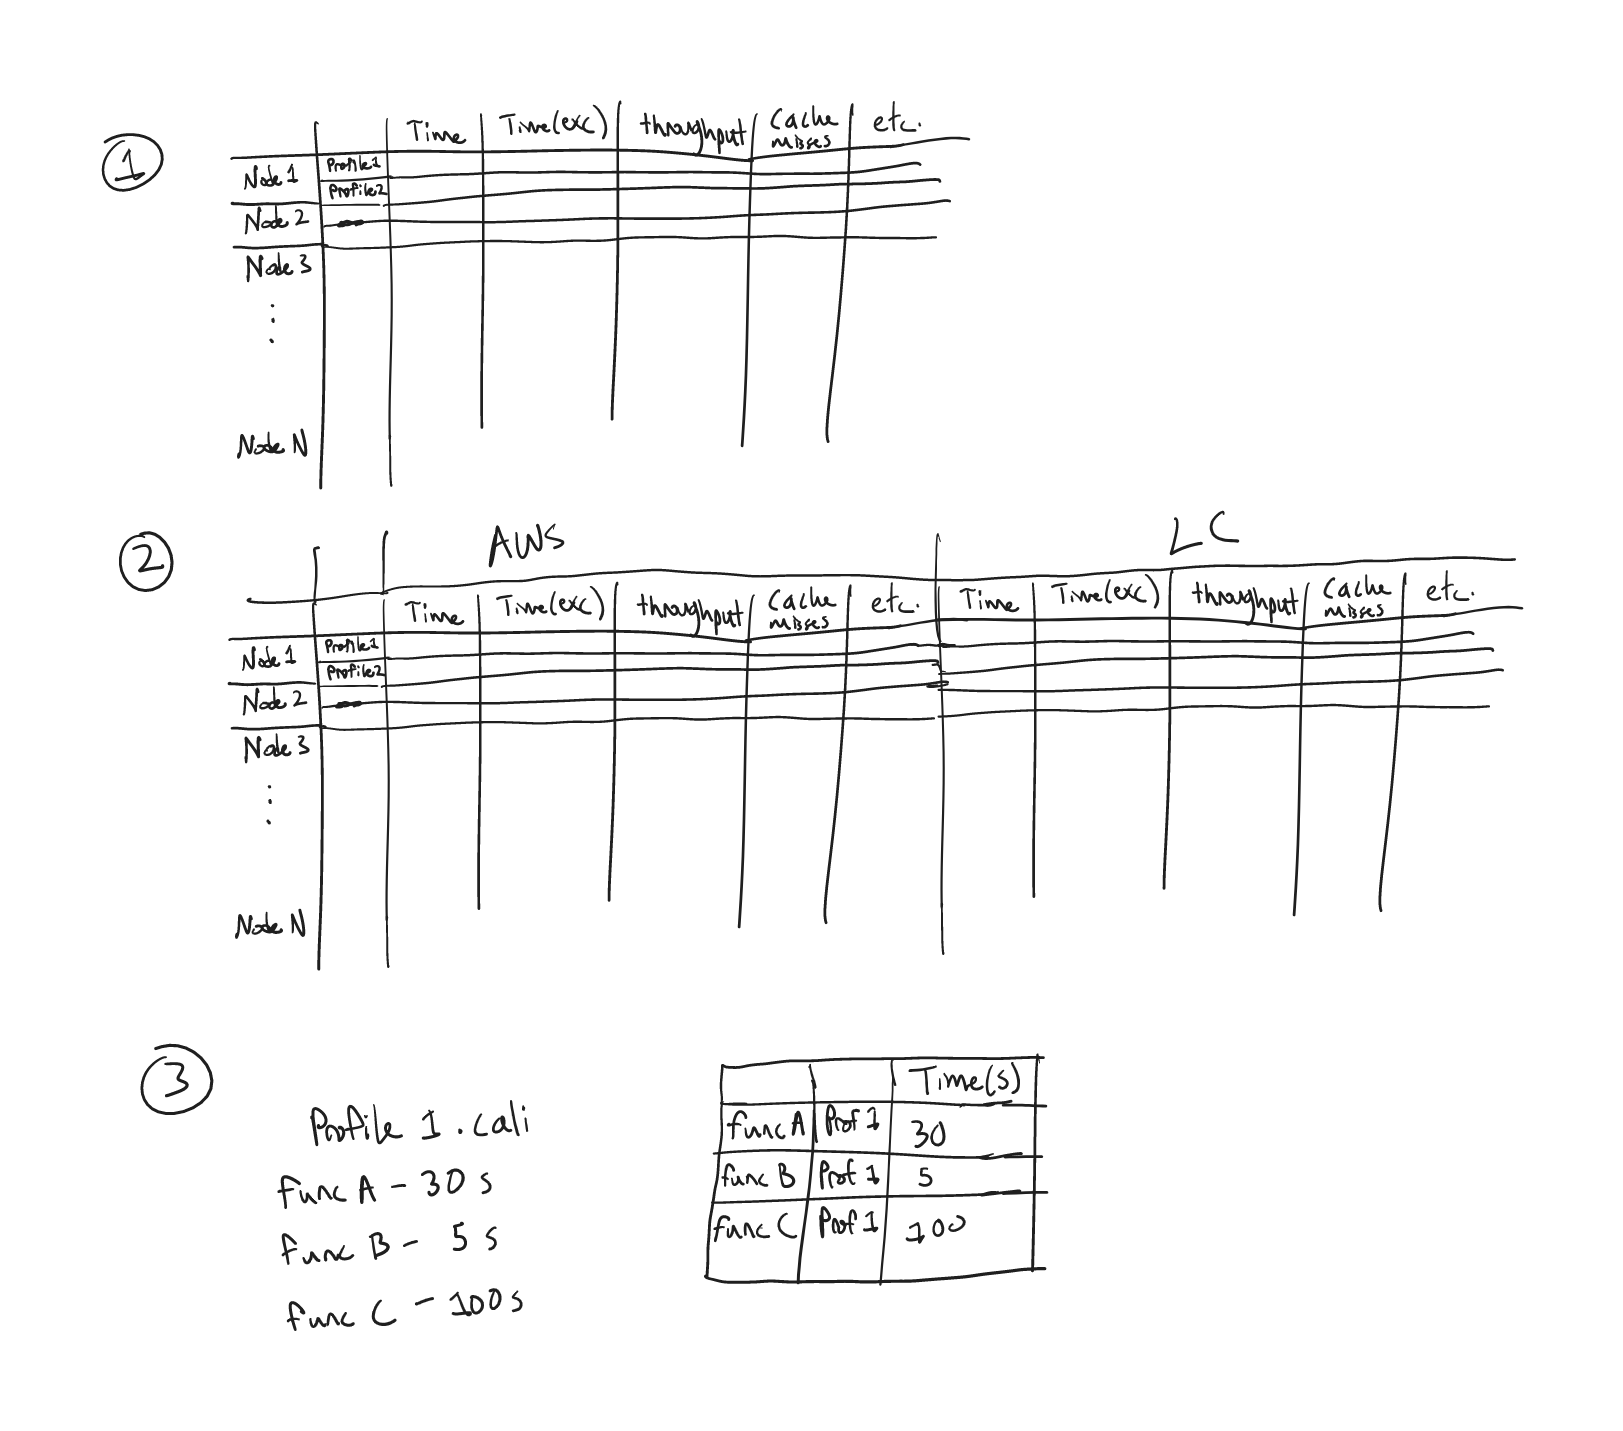 1
Time Time(exc) throughput Cache misses etc.
Node 1 Profile1
Profile2
Node 2
Node 3
⋮
Node N
2
AWS LC
Time Time(exc) throughput Cache misses etc. Time Time(exc) throughput Cache misses etc.
Node 1 Profile1
Profile2
Node 2
Node 3
⋮
Node N
3
Profile 1.cali
func A - 30 s
func B - 5 s
func C - 100s
Time(s)
func A Prof 1 30
func B Prof 1 5
func C Prof 1 100